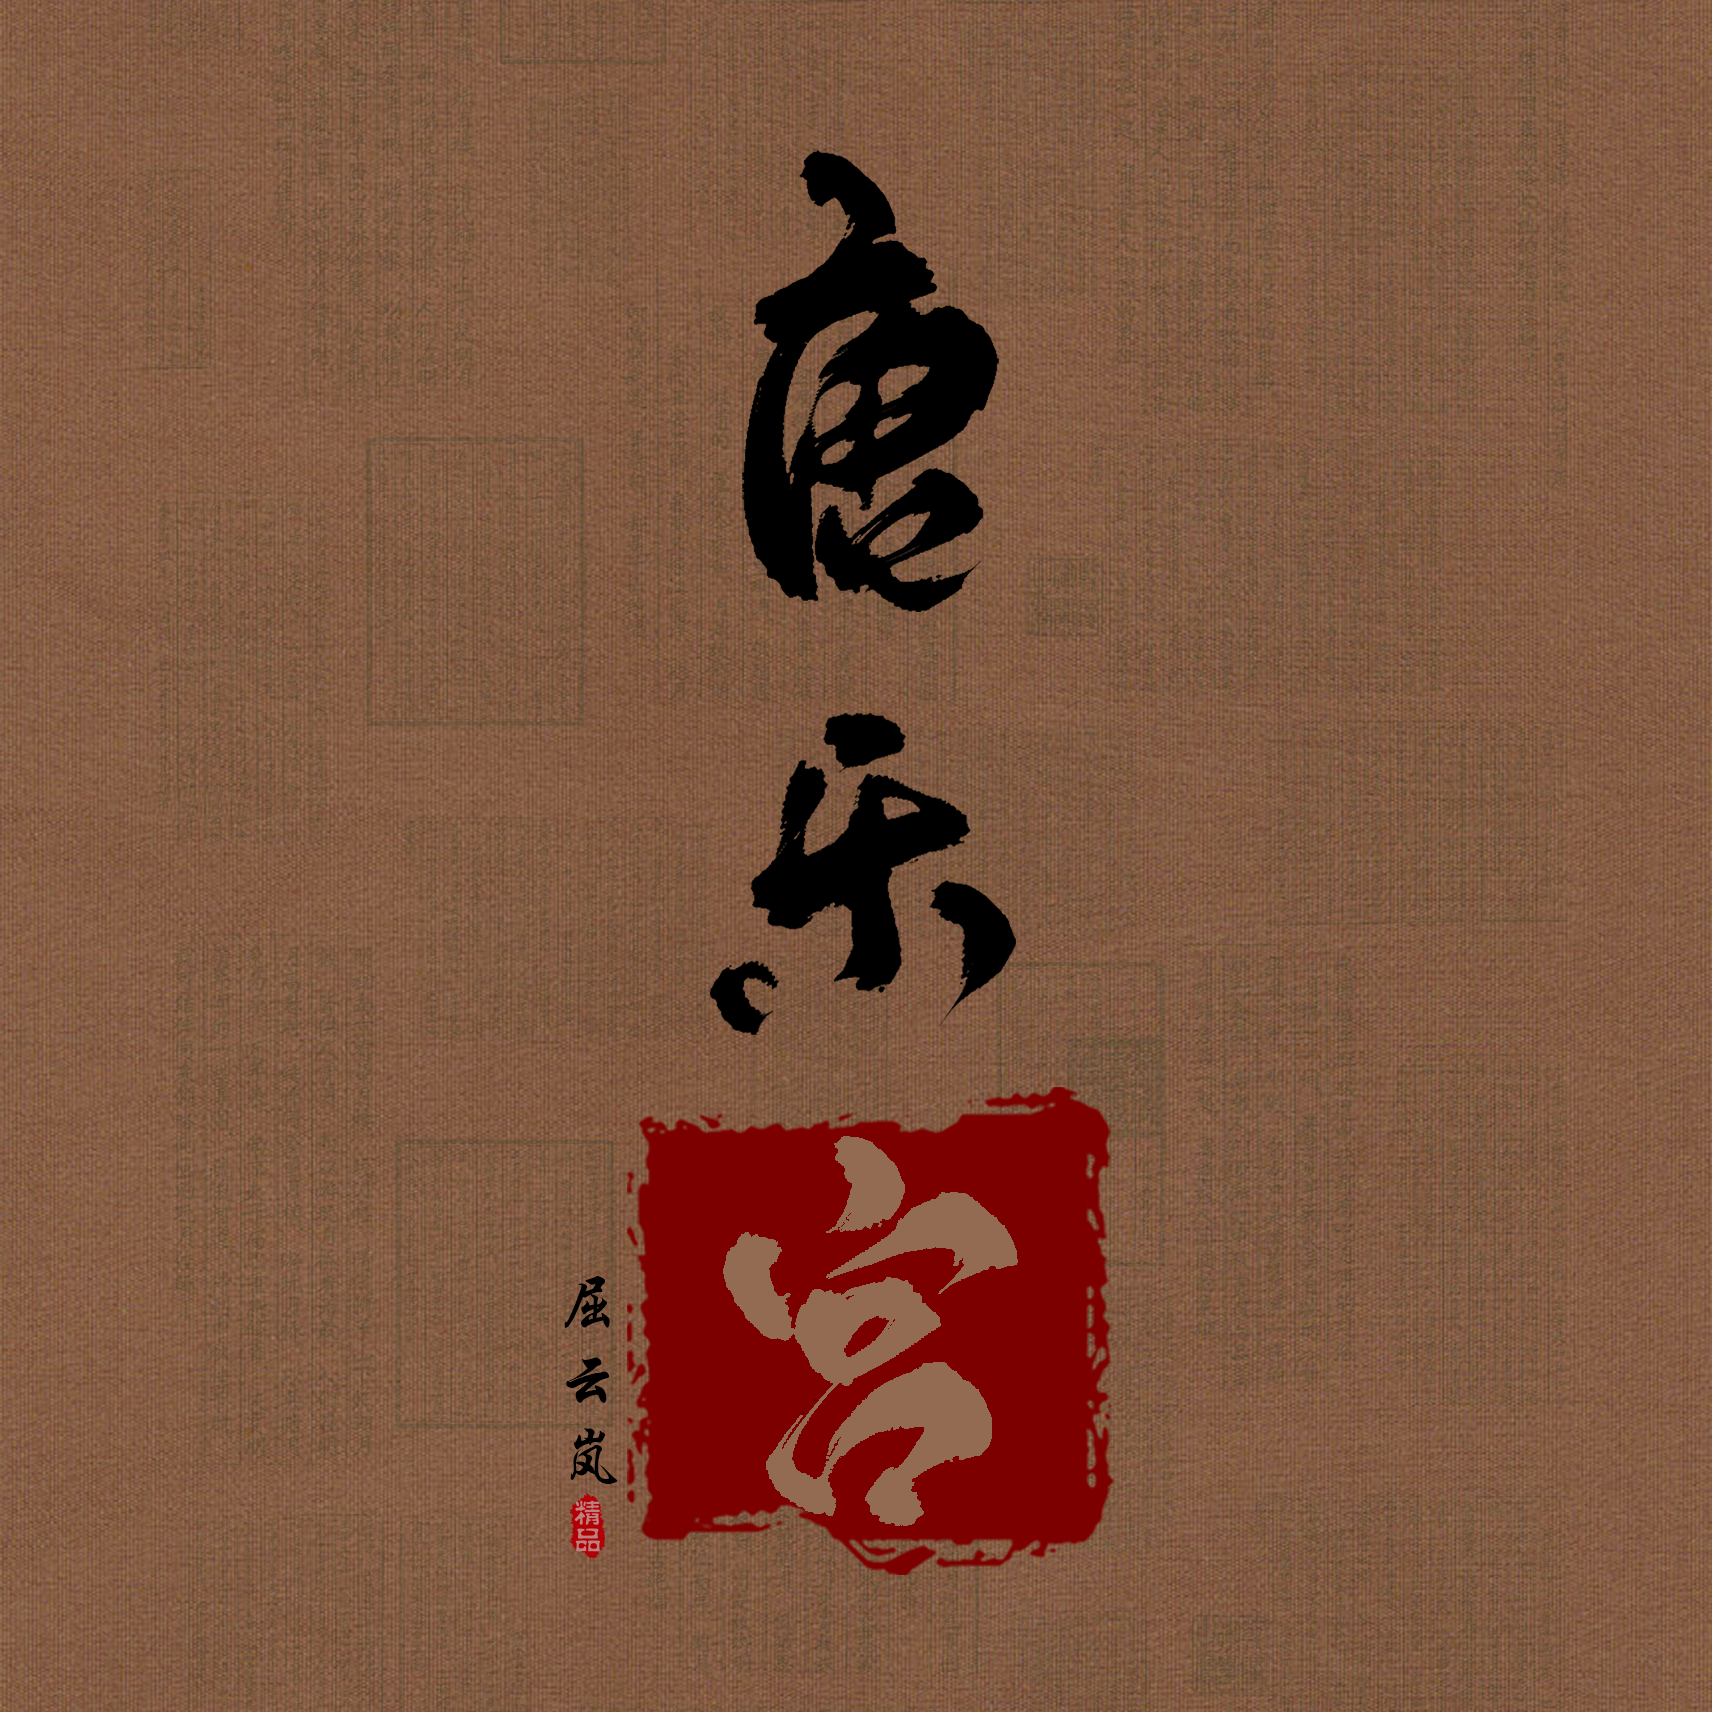 唐乐宫
屈云岚
精品